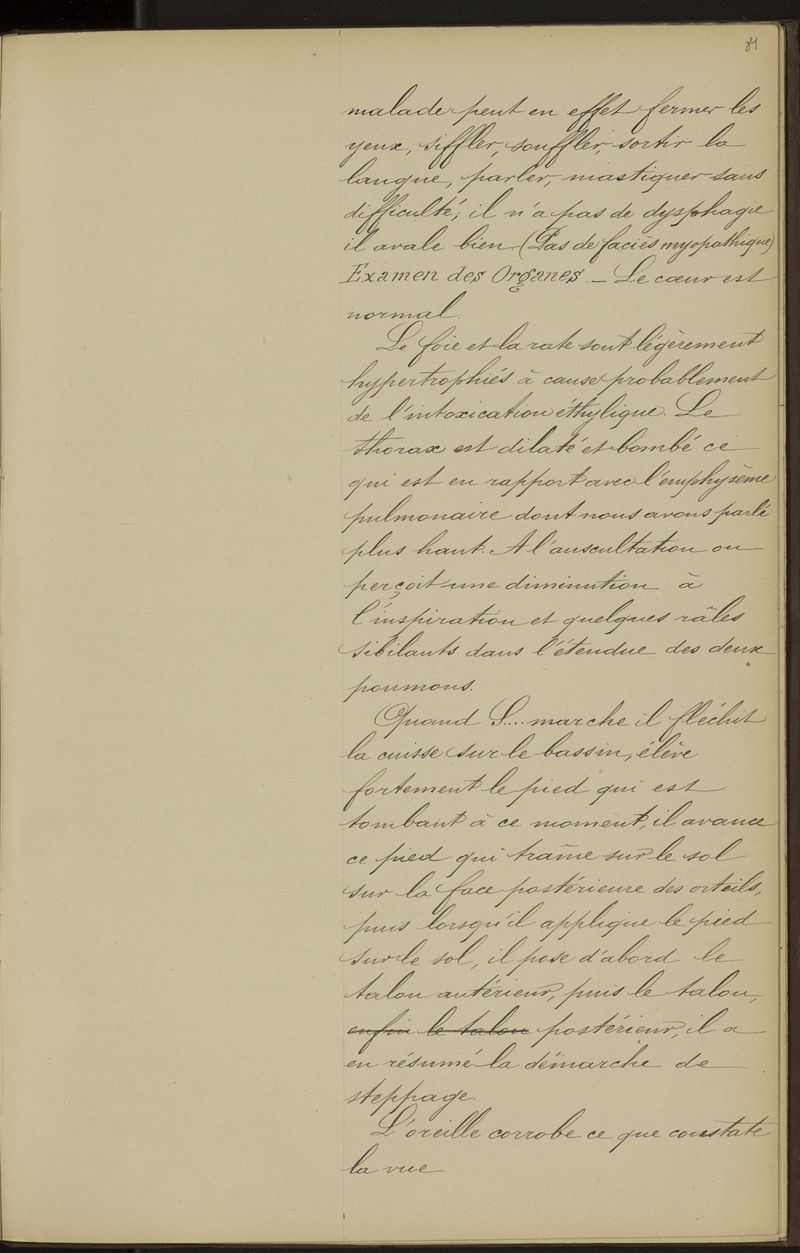 81
malade peut en effet fermer les
yeux, siffler, souffler, sortir la
langue, parler, mastiquer sans
difficulté; il n'a pas de dysphagie
il avale bien (Pas de facies myopathique)
Examen des Organes. – Le cœur est
normal.
Le foie et la rate sont légèrement
hypertrophiés à cause probablement
de l'intoxication éthylique. Le
thorax est dilaté et bombé ce
qui est en rapport avec l'emphysème
pulmonaire dont nous avons parlé
plus haut. A l'auscultation on
perçoit une diminution à
l'inspiration et quelques râles
sibilants dans l'étendue des deux
poumons.
Quand S.... marche il fléchit
la cuisse sur le bassin, élève
fortement le pied qui est
tombant à ce moment, il avance
ce pied qui traîne sur le sol
sur la face postérieure des orteils,
puis lorsqu'il applique le pied
sur le sol, il pose d'abord le
talon antérieur, puis le talon,
enfin le talon postérieur, il a
en résumé la démarche de
steppage.
L'oreille corrobe ce que constate
la vue